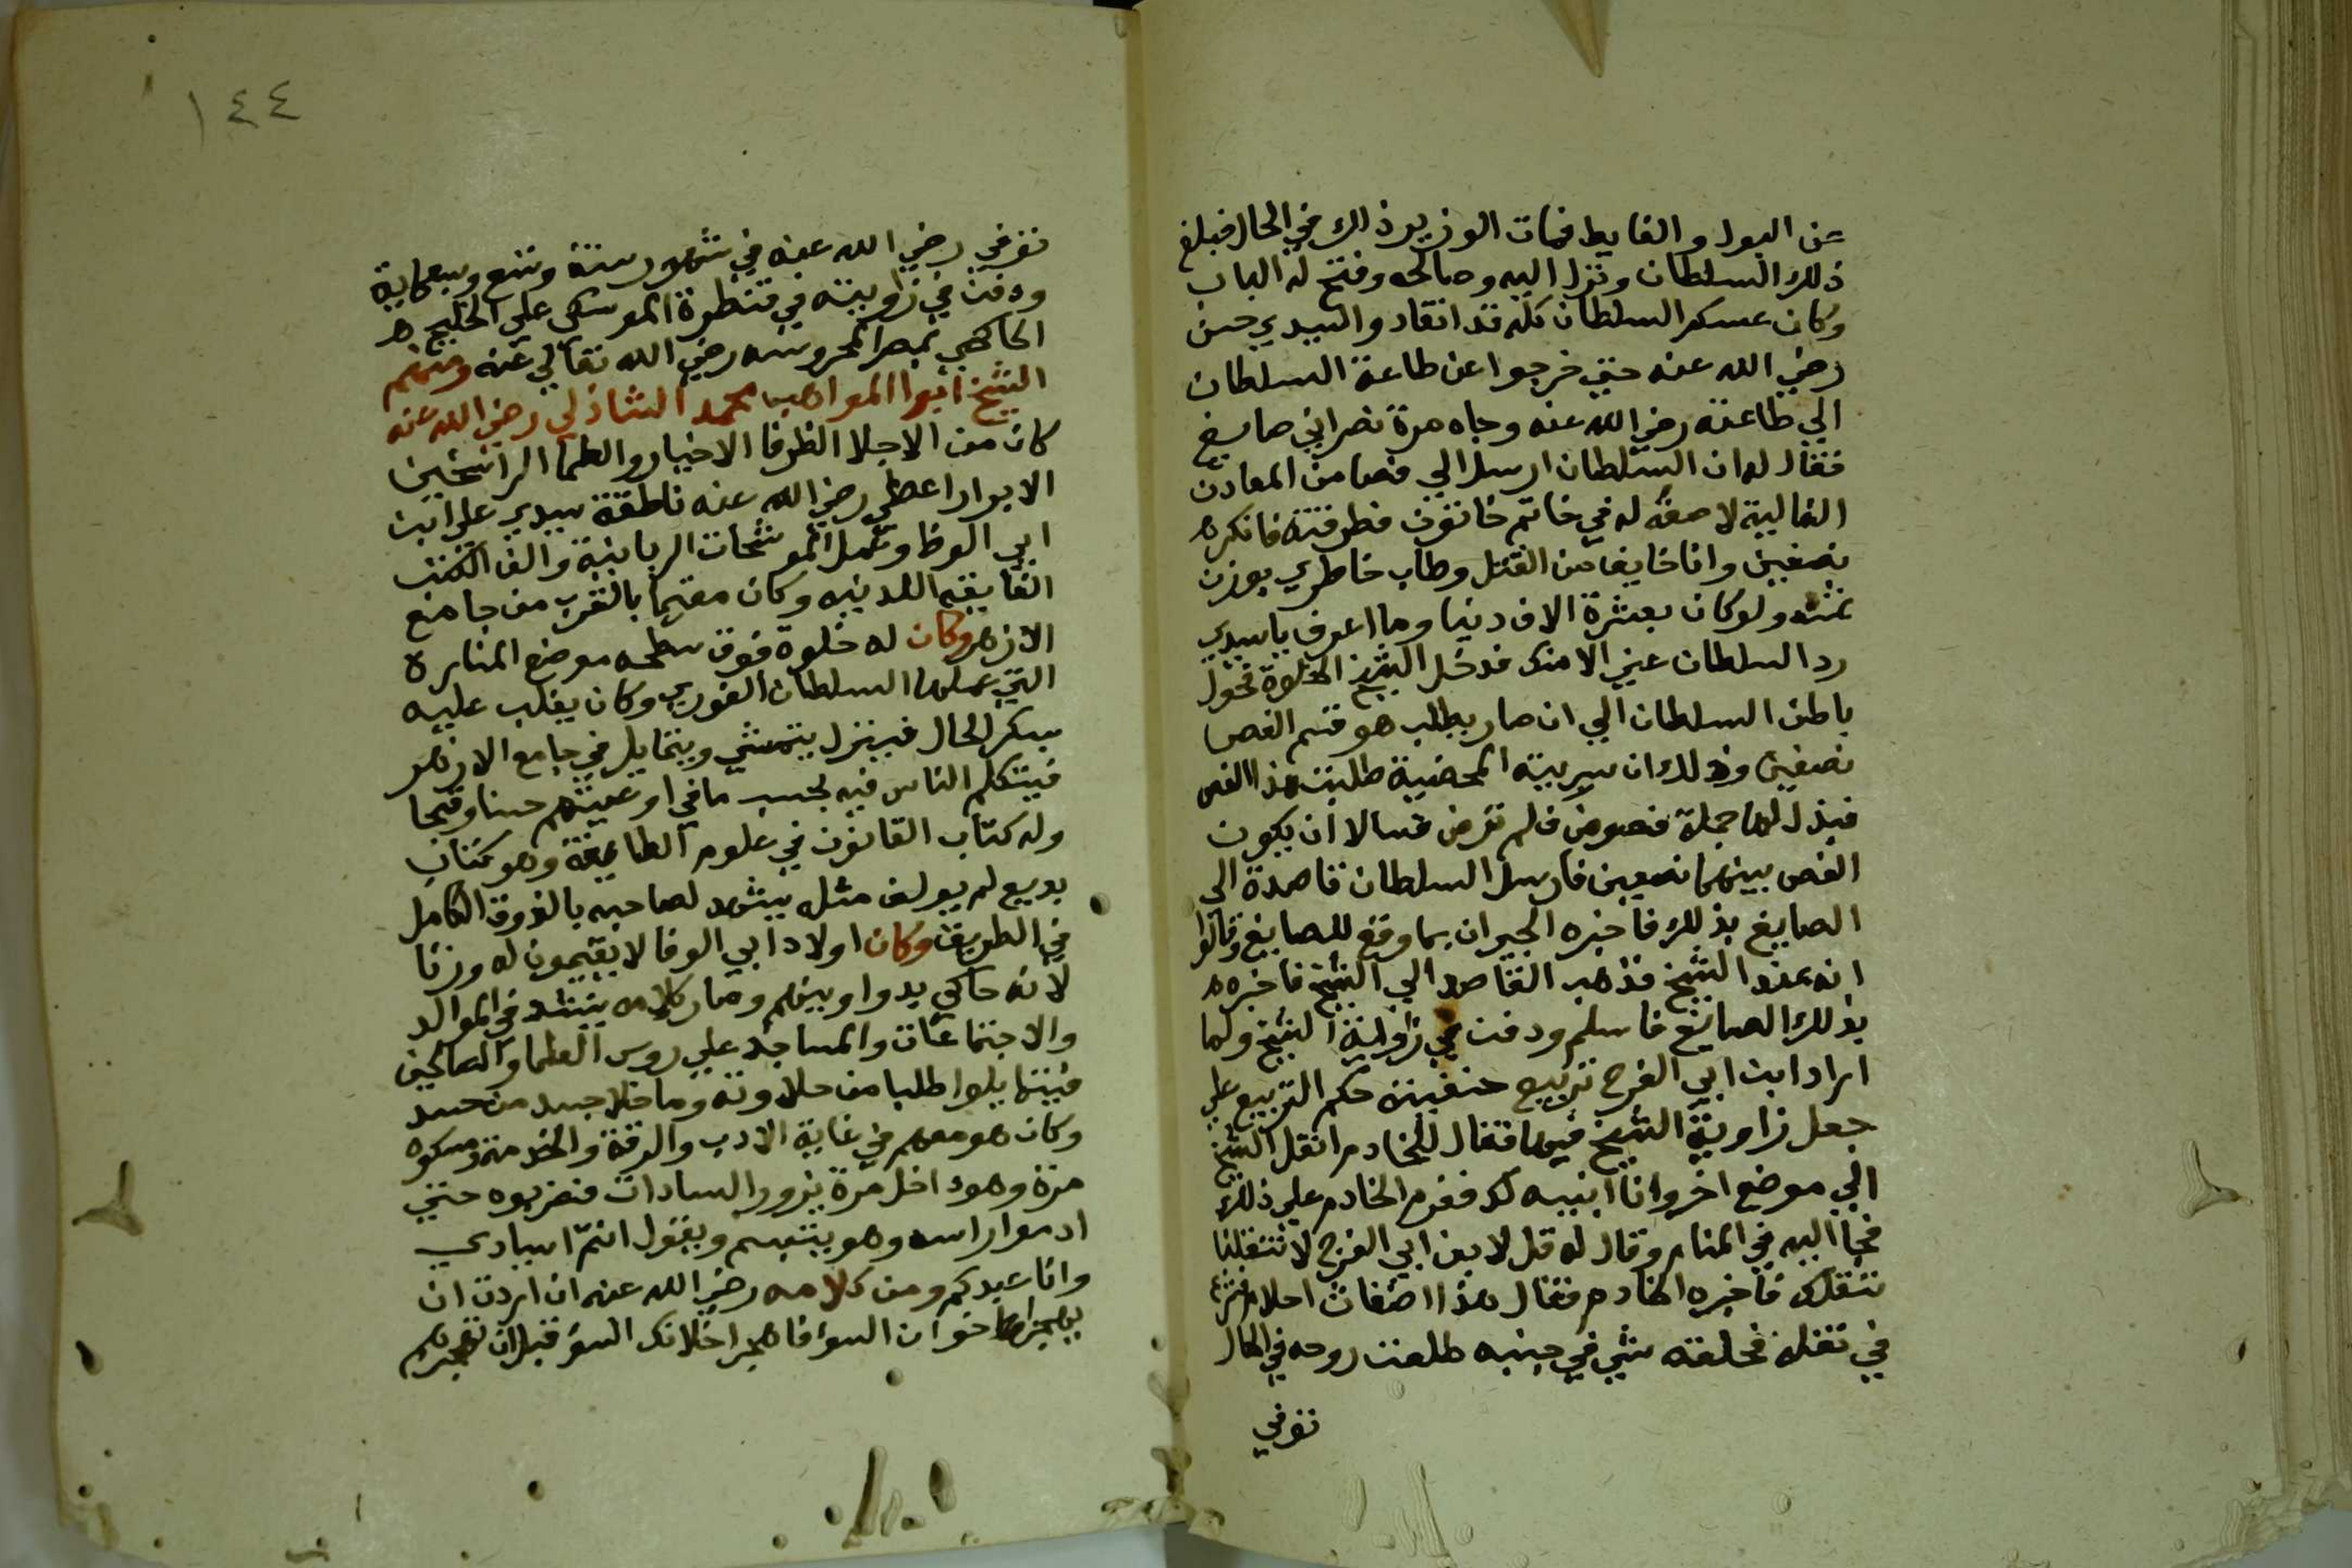 عن البول والغايط فمات الوزير ذلك في الحال فبلغ
ذلك السلطان ونزل اليه وصالحه وفتح له الباب
وكان عسكر السلطان كله قد انقادوا لسيدي حسن
رضي الله عنه حتي خرجوا عن طاعة السلطان
الي طاعته رضي الله عنه وجاه مرة نصراني صايغ
فقال له ان السلطان ارسل الي فصا من المعادن
الغالية لاصقه له في خاتم خاتون فطرقته فانكسر
نصفين وانا خايف من القتل وطاب خاطري بوزن
ثمنه ولو كان بعشرة الاف دينار وما اعرف يا سيدي
رد السلطان عني الا منك فدخل الشيخ الخلوة فحول
باطن السلطان الي ان صار يطلب هو قسم الفص
نصفين وذلك ان سريته المحضية طلبت هذا الفص
فبذل لها جملة فصوص فلم ترض فسالا ان يكون
الفص بينهما نصفين فارسل السلطان قاصدة الي
الصايغ بذلك فاخبره الجيران بما وقع للصايغ وقالوا
انه عند الشيخ فذهب القاصد الي الشيخ فاخبره
بذلك الصايغ فاسلم ودفن في زاوية الشيخ ولما
اراد ابن ابي الفرج تربيع حنفيته حكم التربيع علي
جعل زاوية الشيخ فيها فقال للخادم انقل الشيخ
الي موضع اخر وانا ابنيه لك فعزم الخادم علي ذلك
فجا اليه في المنام وقال له قل لابن ابي الفرج لا تنقلنا
ننقلك فاخبره الخادم فقال هذا اضغاث احلام فشرع
في نقله فحلقته شي في جنبه طلعت روحه في الحال
توفي
١٤٤
توفي رضي الله عنه في شهور سنة وتسع وسبعماية
ودفن في زاويته في قنطرة الموسكي علي الخليج
الحاكمي بمصر المحروسه رضي الله تعالي عنه ومنهم
الشيخ ابوا المواهب محمد الشاذلي رضي الله عنه
كان من الاجلا الظرفا الاخيار والعلما الراسخين
الابرار اعطي رضي الله عنه ناطقة سيدي علي ابن
ابي الوفا وعمل الموشحات الربانية والف الكتب
الفايقه اللدنيه وكان مقيما بالقرب من جامع
الازهر وكان له خلوة فوق سطحه موضع المنارة
التي عملها السلطان الغوري وكان يغلب عليه
سكر الحال فينزل يتمشي ويتمايل في جامع الازهر
فيتكلم الناس فيه بحسب ما في اوعيتهم حسنا وقبحا
وله كتاب القانون في علوم الطايفة وهو كتاب
بديع لم يولف مثله يشهد لصاحبه بالذوق الكامل
في الطريق وكان اولاد ابي الوفا لا يقيمون له وزنا
لانه حاكي بدواوينهم وصار كلامه ينشد في الموالد
والاجتماعات والمساجد علي روس العلما والصالحين
فيتمايلوا طلبا من حلاوته وما خلا جسد من حسد
وكان هو معهم في غاية الادب والرقة والخدمة ومسكوه
مرة وهو داخل مرة يزور السادات فضربوه حتي
ادموا راسه وهو يتبسم ويقول انتم اسيادي
وانا عبدكم ومن كلامه رضي الله عنه ان اردت ان
يهجرك اخوان السوء فاهجر اخلاقك السوء قبل ان تهجرهم